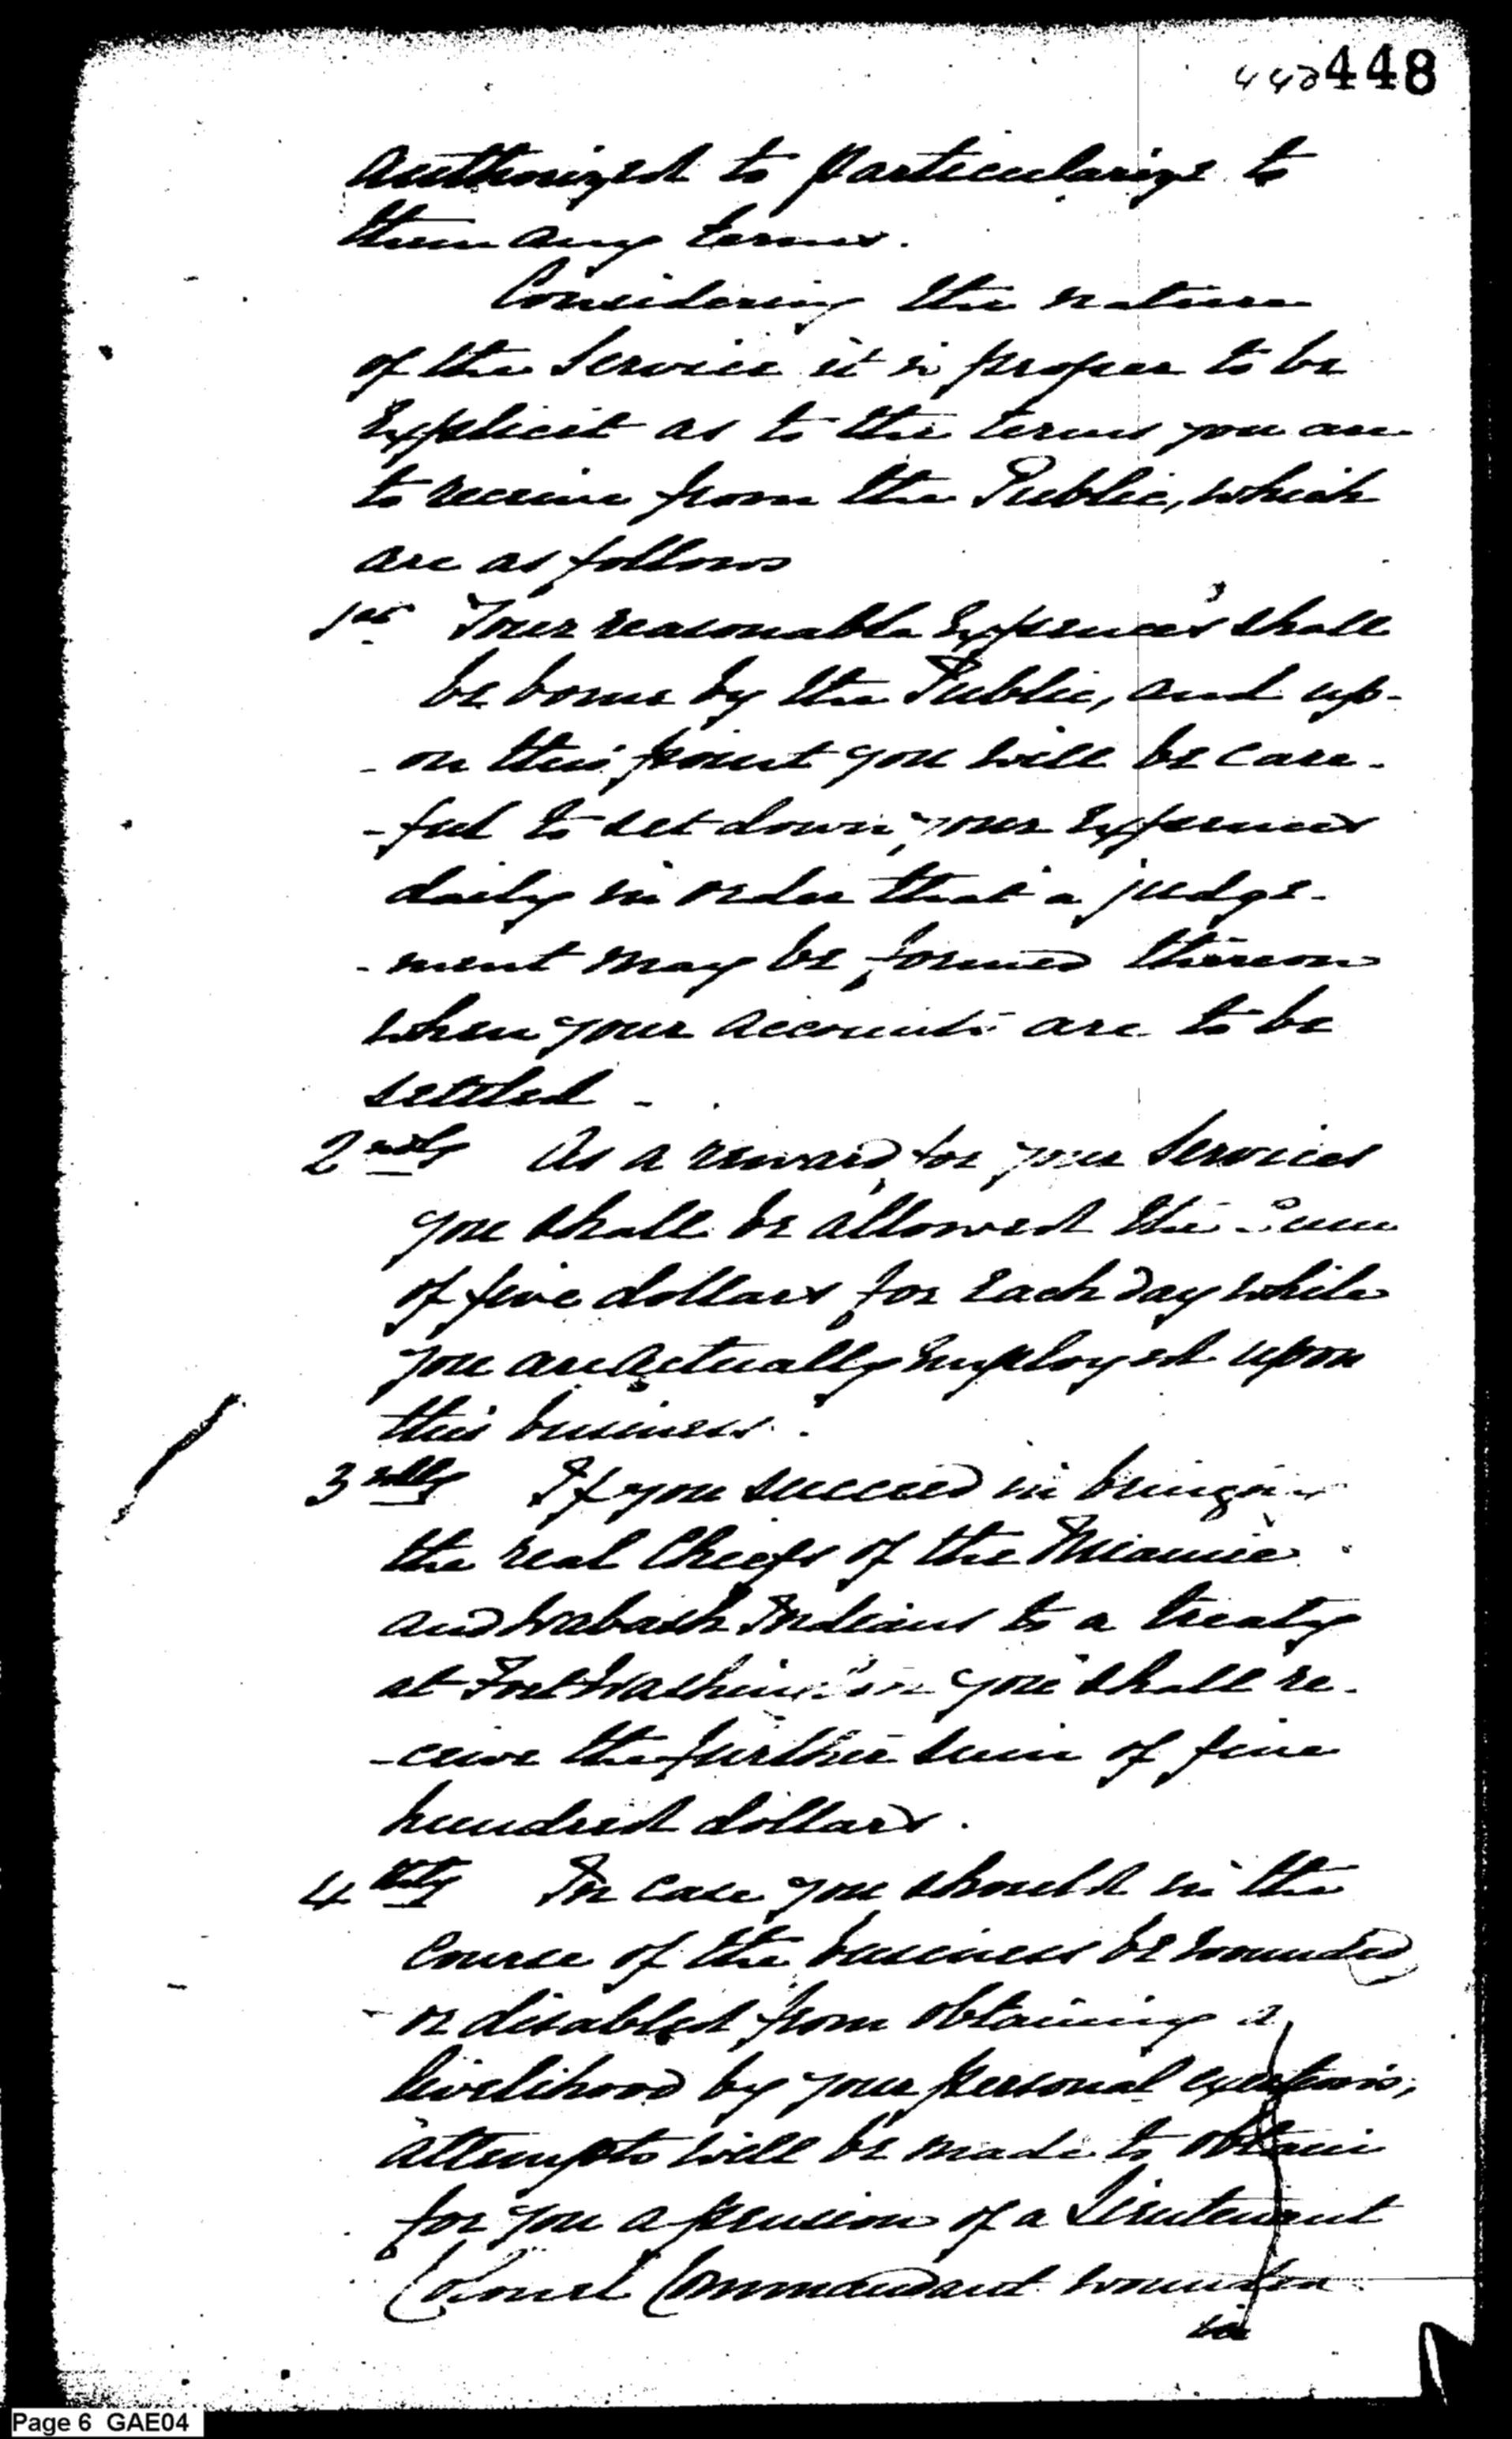 448 448
authorized to particularize to
them any terms.
Considering the nature
of the Service it is proper to be
Explicit as to the terms you are
to receive from the Public, which
are as follows
1st Your reasonable Expences shall
be borne by the Public, and up-
- on this point you will be care-
- ful to set down, your Expences
daily in order that a judge-
- ment may be formed thereon
when your accounts are to be
settled -
2ndly As a reward for your Services
you shall be allowed the Sum
of five dollars for each day while
you are actually employed upon
this business.
3rdly If you succeed in bringing
the real Chiefs of the Miamie
and Wabash Indians to a treaty
at Fort Washington you shall re-
- ceive the further sum of five
hundred dollars.
4thly In case you should in the
Course of the business be wounded
or disabled from obtaining a
livelihood by your personal exertions,
attempts will be made to obtain
for you a pension of a Lieutenant
Colonel Commandant wounded
in
Page 6 GAE04